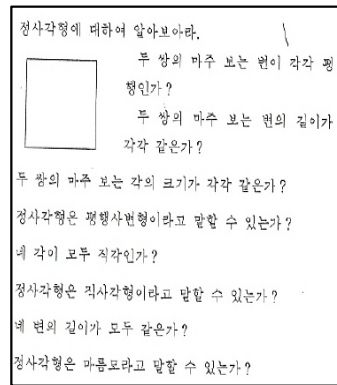 정사각형에 대하여 알아보아라.
두 쌍의 마주 보는 변이 각각 평
행인가?
두 쌍의 마주 보는 변의 길이가
각각 같은가?
두 쌍의 마주 보는 각의 크기가 각각 같은가?
정사각형은 평행사변형이라고 말할 수 있는가?
네 각이 모두 직각인가?
정사각형은 직사각형이라고 말할 수 있는가?
네 변의 길이가 모두 같은가?
정사각형은 마름모라고 말할 수 있는가?